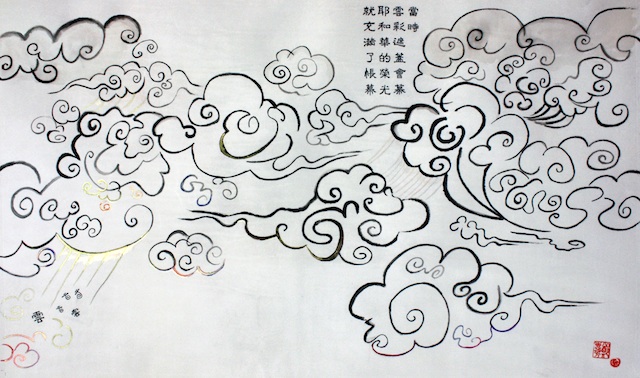 當時
雲彩遮蓋會幕
耶和華的榮光
就充滿了帳幕